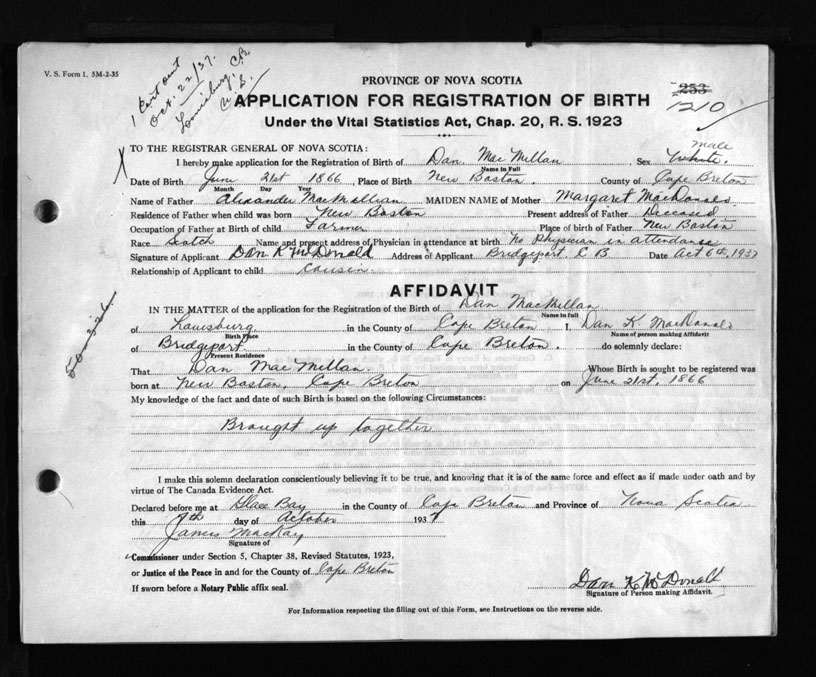 V. S. Form 1. 5M-2-35
1 Cert out
Oct. 22/37.
Louisburg, C.B.
PROVINCE OF NOVA SCOTIA
253
1210
APPLICATION FOR REGISTRATION OF BIRTH
Under the Vital Statistics Act, Chap. 20, R. S. 1923
TO THE REGISTRAR GENERAL OF NOVA SCOTIA:
male
I hereby make application for the Registration of Birth of Dan. Mac Millan Sex White.
Name in Full
Date of Birth June 21st 1866, Place of Birth New Boston. County of Cape Breton
Month Day Year
Name of Father Alexander MacMillian MAIDEN NAME of Mother Margaret MacDonald
Residence of Father when child was born New Boston Present address of Father Deceased
Occupation of Father at Birth of child Farmer Place of birth of Father New Boston
Race Scotch Name and present address of Physician in attendance at birth No Physician in attendance
Signature of Applicant Dan K McDonald Address of Applicant Bridgeport C B Date Oct 6th, 1937
Relationship of Applicant to child Cousin
AFFIDAVIT
IN THE MATTER of the application for the Registration of the Birth of Dan MacMillan
Name in full
of Louisburg in the County of Cape Breton I, Dan K MacDonald
Birth Place Name of person making Affidavit
of Bridgeport in the County of Cape Breton. do solemnly declare:
Present Residence
That Dan MacMillan Whose Birth is sought to be registered was
born at New Boston, Cape Breton on June 21st, 1866
My knowledge of the fact and date of such Birth is based on the following Circumstances:
Brought up together
I make this solemn declaration conscientiously believing it to be true, and knowing that it is of the same force and effect as if made under oath and by
virtue of The Canada Evidence Act.
Declared before me at Glace Bay in the County of Cape Breton and Province of Nova Scotia
this 7th day of October 1937
James MacKay
Signature of
Commissioner under Section 5, Chapter 38, Revised Statutes, 1923,
or Justice of the Peace in and for the County of Cape Breton
If sworn before a Notary Public affix seal.
Dan K McDonald
Signature of Person making Affidavit.
For Information respecting the filling out of this Form, see Instructions on the reverse side.